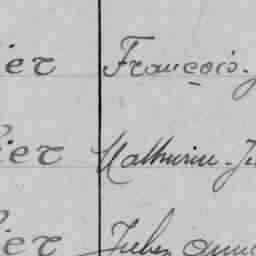 ier François-
ier Mathurin-Je
ier Julien